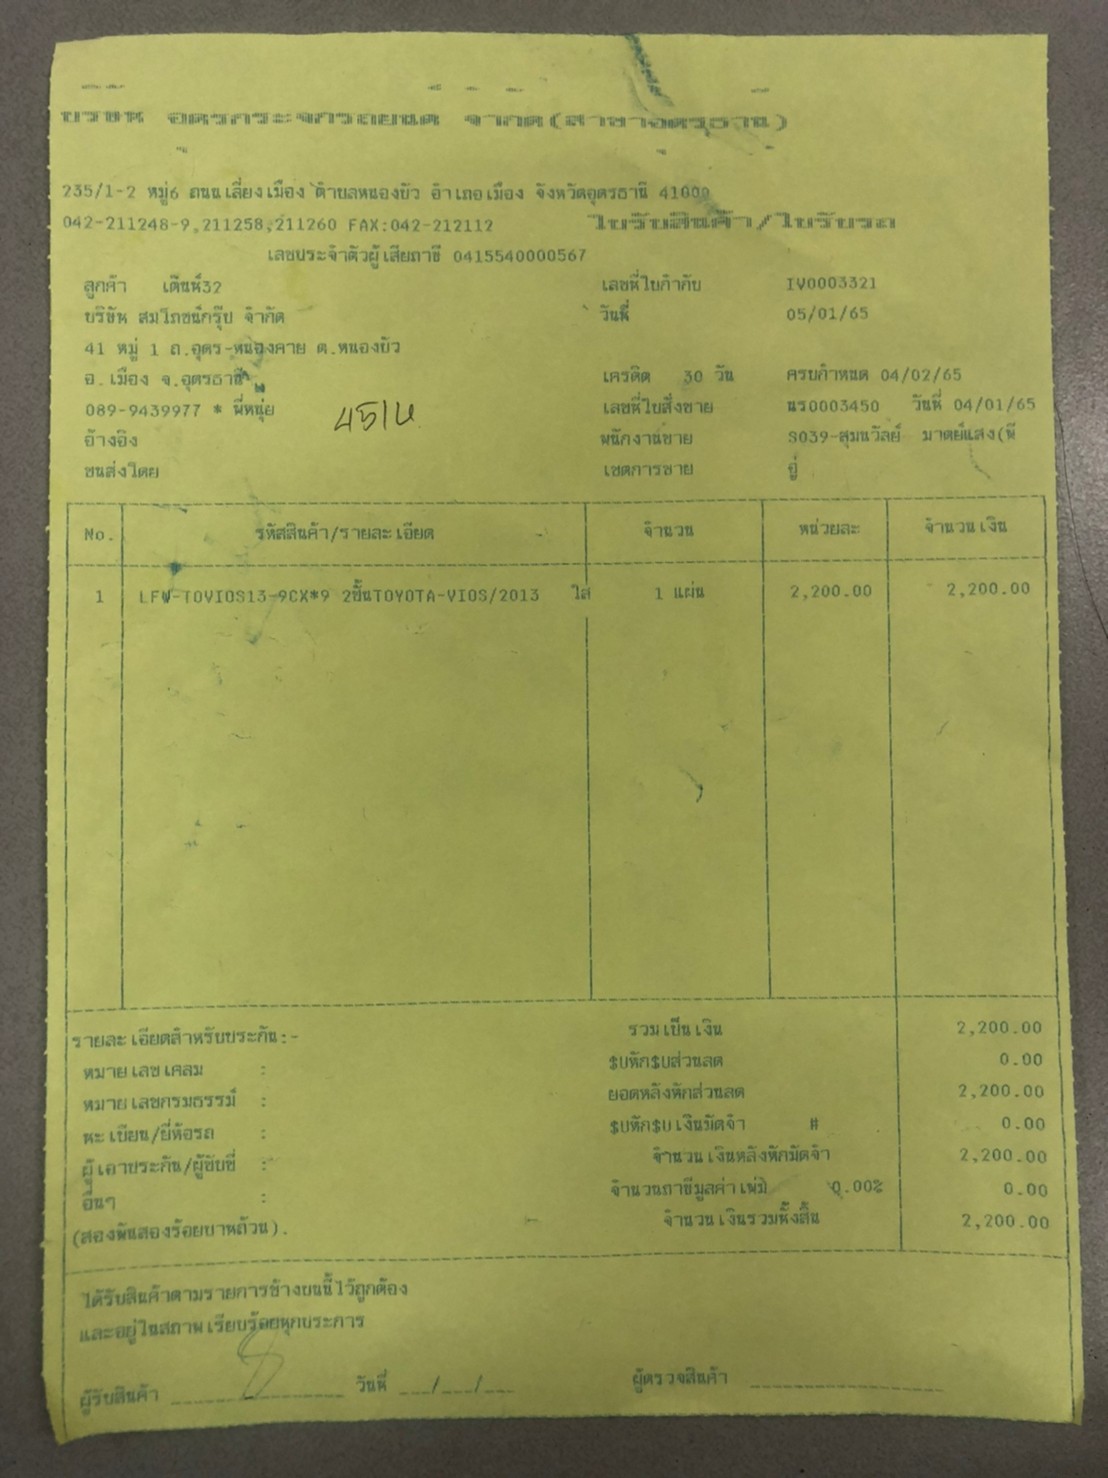 บริษัท อุดรกระจกรถยนต์ จำกัด(สาขาอุดรธานี)
235/1-2 หมู่6 ถนนเลี่ยงเมือง ตำบลหนองบัว อำเภอเมือง จังหวัดอุดรธานี 41000
042-211248-9,211258,211260 FAX:042-212112 ใบรับสินค้า/ใบรับรถ
เลขประจำตัวผู้เสียภาษี 0415540000567
ลูกค้า เต๊นท์32 เลขที่ใบกำกับ IV0003321
บริษัท สมโภชน์กรุ๊ป จำกัด วันที่ 05/01/65
41 หมู่ 1 ถ.อุดร-หนองคาย ต.หนองบัว
อ.เมือง จ.อุดรธานี เครดิต 30 วัน ครบกำหนด 04/02/65
089-9439977 * พี่หนุ่ย เลขที่ใบสั่งขาย นร0003450 วันที่ 04/01/65
อ้างอิง พนักงานขาย S039-สุมนวัลย์ มาตย์แสง(พี่
ขนส่งโดย เขตการขาย อู่
No. รหัสสินค้า/รายละเอียด จำนวน หน่วยละ จำนวนเงิน
1 LFW-TOVIOS13-9CX*9 2ชั้นTOYOTA-VIOS/2013 ใส 1 แผ่น 2,200.00 2,200.00
รายละเอียดสำหรับประกัน:- รวมเป็นเงิน 2,200.00
หมายเลขเคลม : $Uหัก$Uส่วนลด 0.00
หมายเลขกรมธรรม์ : ยอดหลังหักส่วนลด 2,200.00
ทะเบียน/ยี่ห้อรถ : $Uหัก$Uเงินมัดจำ # 0.00
ผู้เอาประกัน/ผู้ขับขี่ : จำนวนเงินหลังหักมัดจำ 2,200.00
อื่นๆ : จำนวนภาษีมูลค่าเพิ่ม 0.00% 0.00
(สองพันสองร้อยบาทถ้วน). จำนวนเงินรวมทั้งสิ้น 2,200.00
ได้รับสินค้าตามรายการข้างบนนี้ไว้ถูกต้อง
และอยู่ในสภาพเรียบร้อยทุกประการ
ผู้รับสินค้า วันที่ / / ผู้ตรวจสินค้า